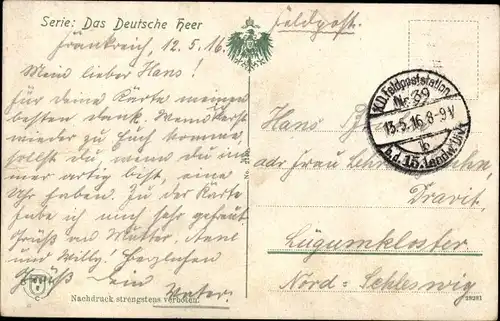 Serie: Das Deutsche Heer
Feldpost.
Frankreich, 12.5.16
Mein lieber Hans!
Für Deine Karte meinen
besten Dank. Wenn
wieder zu Euch komme,
sollst du, wenn du im-
mer artig bist, eine
Uhr haben. Zu der Karte
habe ich mich sehr gefreut.
Grüße an Mutter,
und Willy. Herzlichen
Gruß Dein
Vater.
K.D. Feldpoststation
Nr. 39
13.5.16. 8-9V
b
d. 15. Landw. Div.
Hans
adr Frau
Dravit,
Lügumkloster
Nord-Schleswig
Nachdruck strengstens verboten.